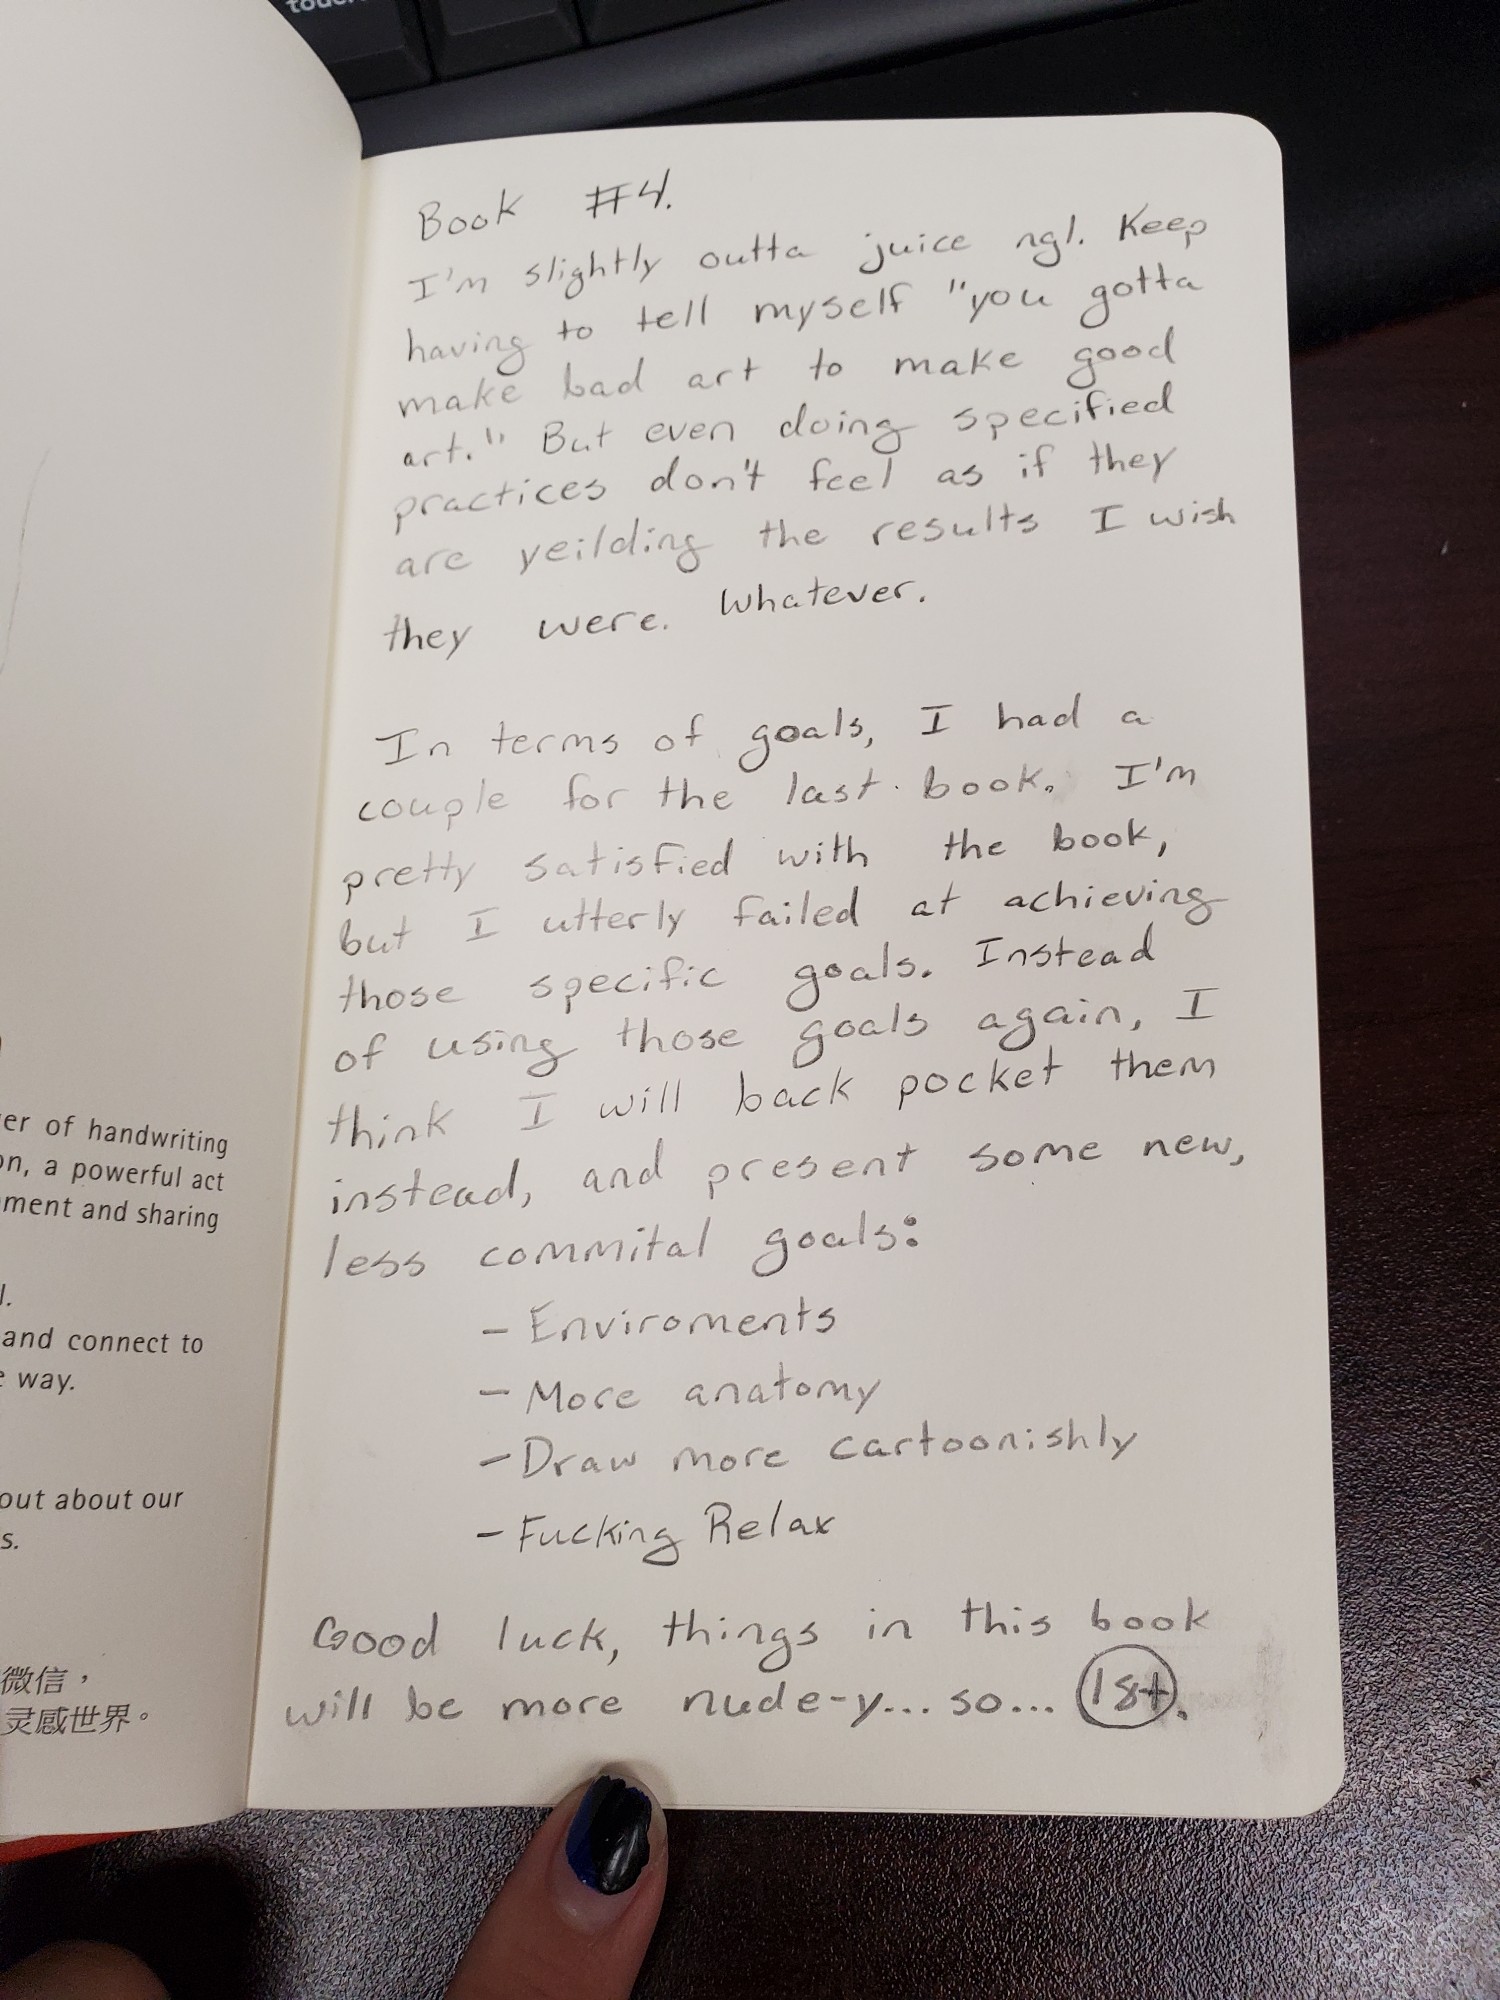 touc
er of handwriting
on, a powerful act
ment and sharing
l.
and connect to
e way.
out about our
s.
微信，
灵感世界。
Book #4.
I'm slightly outta juice ngl. Keep
having to tell myself "you gotta
make bad art to make good
art." But even doing specified
practices don't feel as if they
are yeilding the results I wish
they were. Whatever.
In terms of goals, I had a
couple for the last book. I'm
pretty satisfied with the book,
but I utterly failed at achieving
those specific goals. Instead
of using those goals again, I
think I will back pocket them
instead, and present some new,
less commital goals:
- Enviroments
- More anatomy
- Draw more cartoonishly
- Fucking Relax
Good luck, things in this book
will be more nude-y... so... 18+.